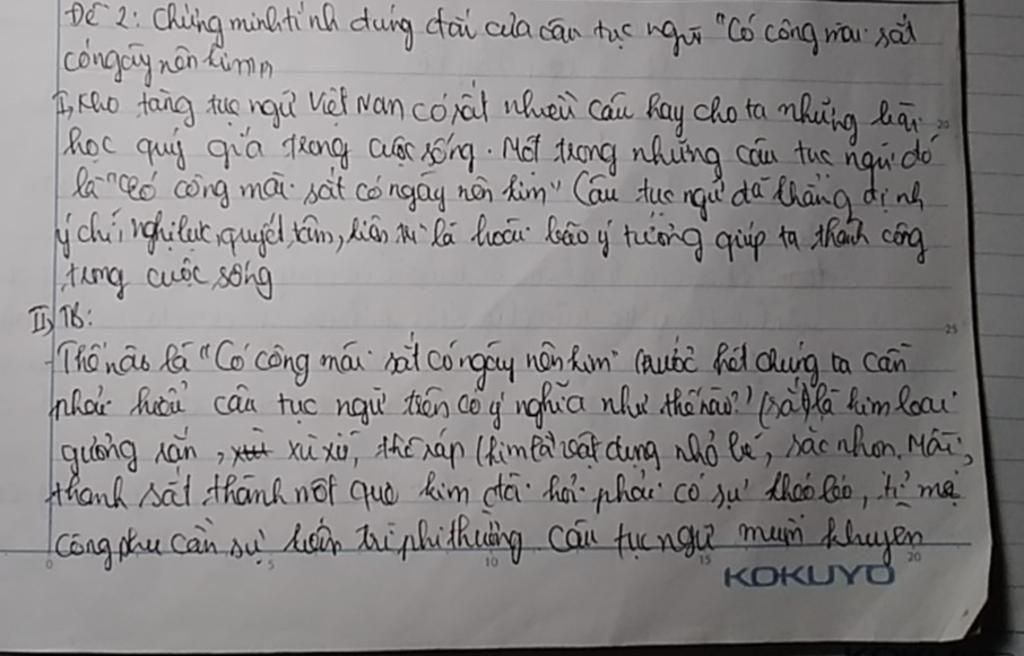 Đề 2: Chứng minh tính đúng đắn của câu tục ngữ "Có công mài sắt
có ngày nên kim"
I, Kho tàng tục ngữ Việt Nam có rất nhiều câu hay cho ta những bài
học quý giá trong cuộc sống. Một trong những câu tục ngữ đó
là "Có công mài sắt có ngày nên kim" Câu tục ngữ đã khẳng định
ý chí, nghị lực, quyết tâm, kiên trì là hoài bão ý tưởng giúp ta thành công
trong cuộc sống
II, TB:
-Thế nào là "Có công mài sắt có ngày nên kim" trước hết chúng ta cần
phải hiểu câu tục ngữ trên có ý nghĩa như thế nào? (sắt) là kim loại
gương sắn, xù xì, thô ráp (kim là vật dụng nhỏ bé, sắc nhọn. Mài
thanh sắt thành một que kim đòi hỏi phải có sự khéo léo, tỉ mỉ
công phu cần sự kiên trì phi thường Câu tục ngữ muốn khuyên
0 5 10 15 20
20
25
KOKUYO